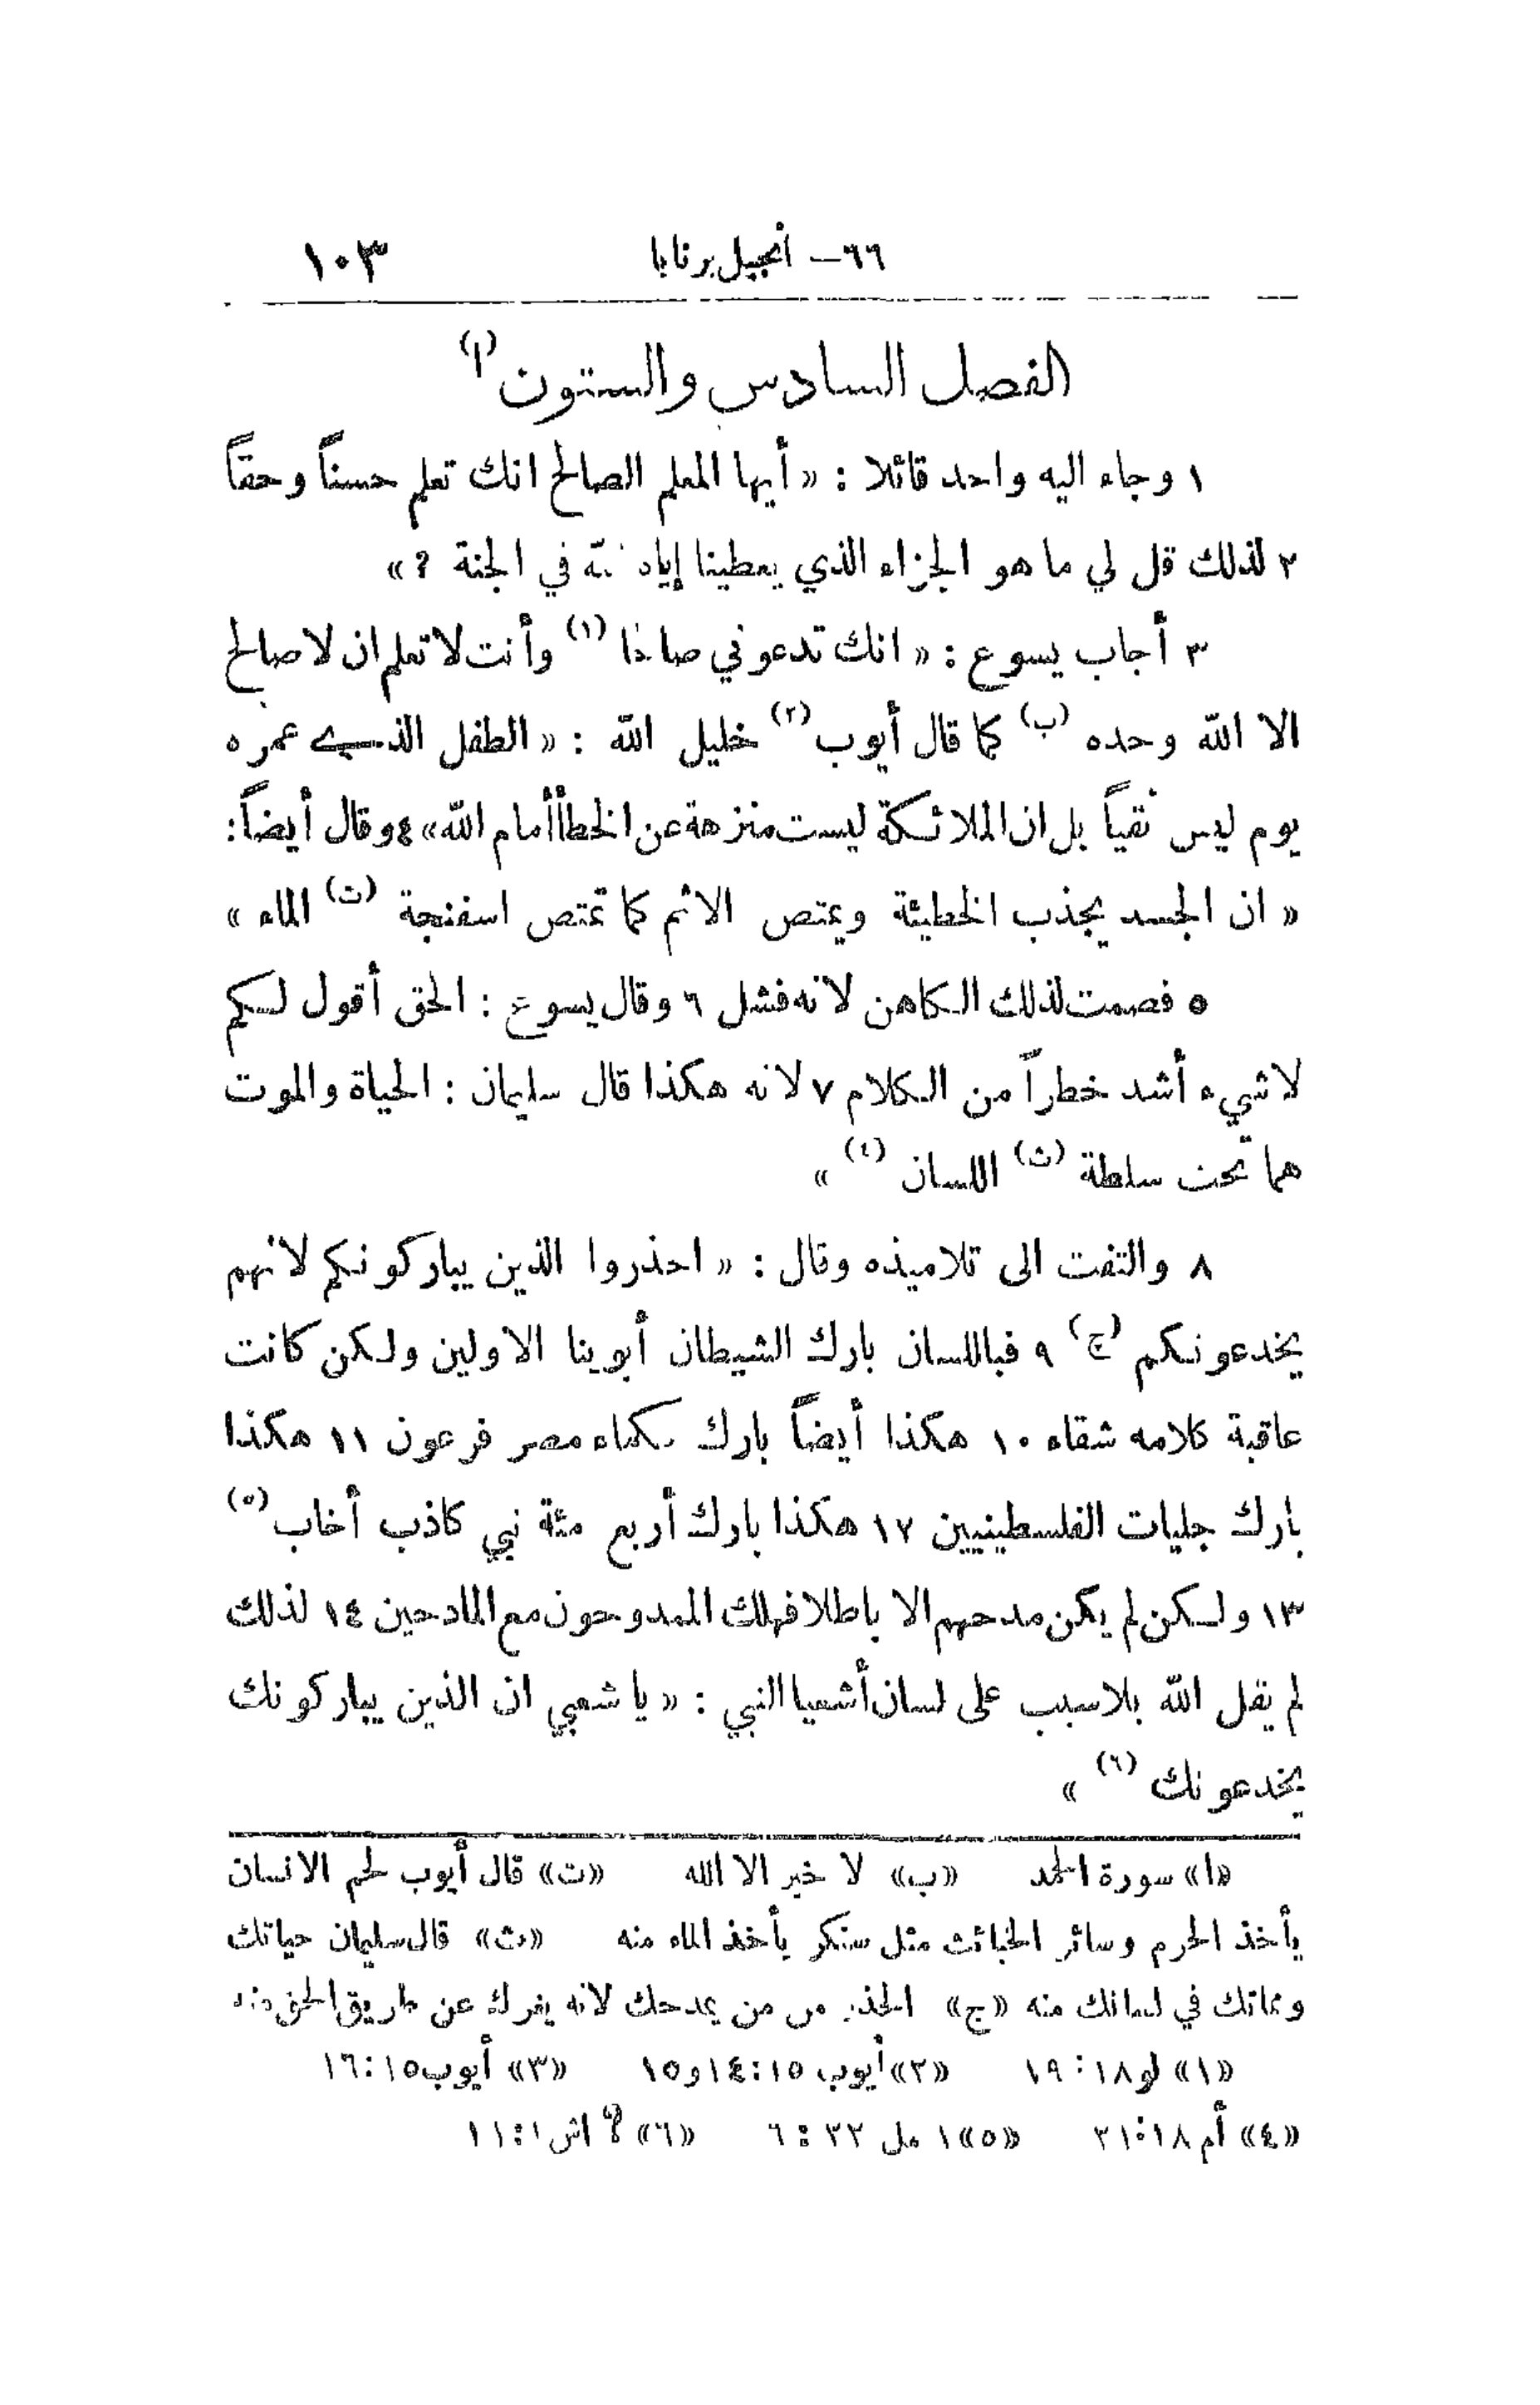 ٦٦– أنجيل برنابا ١٠٣
الفصل السادس والستون (ا)
١ وجاء اليه واحد قائلا : « أيها المعلم الصالح انك تعلم حسناً وحقاً
٢ لذلك قل لي ما هو الجزاء الذي يعطينا إياه في الجنة ؟ »
٣ أجاب يسوع : « انك تدعوني صالحا (١) وأنت لا تعلم ان لا صالح
الا الله وحده (ب) كما قال أيوب (٢) خليل الله : « الطفل الذي عمره
يوم ليس نقياً بل ان الملائكة ليست منزهة عن الخطأ أمام الله » ٤ وقال أيضاً :
« ان الجسد يجذب الخطيئة ويمتص الاثم كما تمتص اسفنجة (ت) الماء »
٥ فصمت لذلك الكاهن لانه فشل ٦ وقال يسوع : الحق أقول لكم
لا شيء أشد خطراً من الكلام ٧ لانه هكذا قال سليمان : الحياة والموت
هما تحت سلطة (ث) اللسان (٤) »
٨ والتفت الى تلاميذه وقال : « احذروا الذين يباركونكم لانهم
يخدعونكم (ج) ٩ فباللسان بارك الشيطان أبوينا الاولين ولكن كانت
عاقبة كلامه شقاء ١٠ هكذا أيضاً بارك حكماء مصر فرعون ١١ هكذا
بارك جليات الفلسطينيين ١٢ هكذا بارك أربع مئة نبي كاذب أخاب (٥)
١٣ ولكن لم يكن مدحهم الا باطلا فهلك الممدوحون مع المادحين ١٤ لذلك
لم يقل الله بلا سبب على لسان أشعيا النبي : « يا شعبي ان الذين يباركونك
يخدعونك (٦) »
«ا» سورة الحمد «ب» لا خير الا الله «ت» قال أيوب لحم الانسان
يأخذ الحرم وسائر الخبائث مثل سنكر يأخذ الماء منه «ث» قال سليمان حياتك
ومماتك في لسانك منه «ج» الحذر من من يمدحك لانه يغرك عن طريق الحق منه
«١» لو ١٨ : ١٩ «٢» أيوب ١٥ : ١٤ و١٥ «٣» أيوب ١٥ : ١٦
«٤» أم ١٨ : ٢١ «٥» ١ مل ٢٢ : ٦ «٦» ؟ اش ١ : ١١